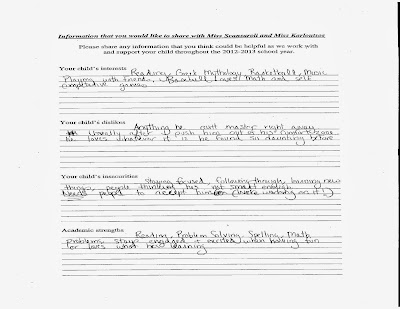 Information that you would like to share with Miss Scanzaroli and Miss
Please share any information that you think could be helpful as we work with
and support your child throughout the 2012-2013 school year.
Your child's interests
Reading, Greek Mythology Basketball, Music
Playing with friends, Baseball, Math and self
competitive games
Your child's dislikes
Anything he can't master right away
Usually after I push him out of his comfort zone
he loves whatever it is he found so daunting before
Your child's insecurities
Staying focused, following through, learning new
things, people thinking he's not smart enough
Needs people to accept him (we're working on it!)
Academic strengths
Reading, Problem Solving, Spelling, Math
problems stays engaged & excited when having fun
or loves what new learning